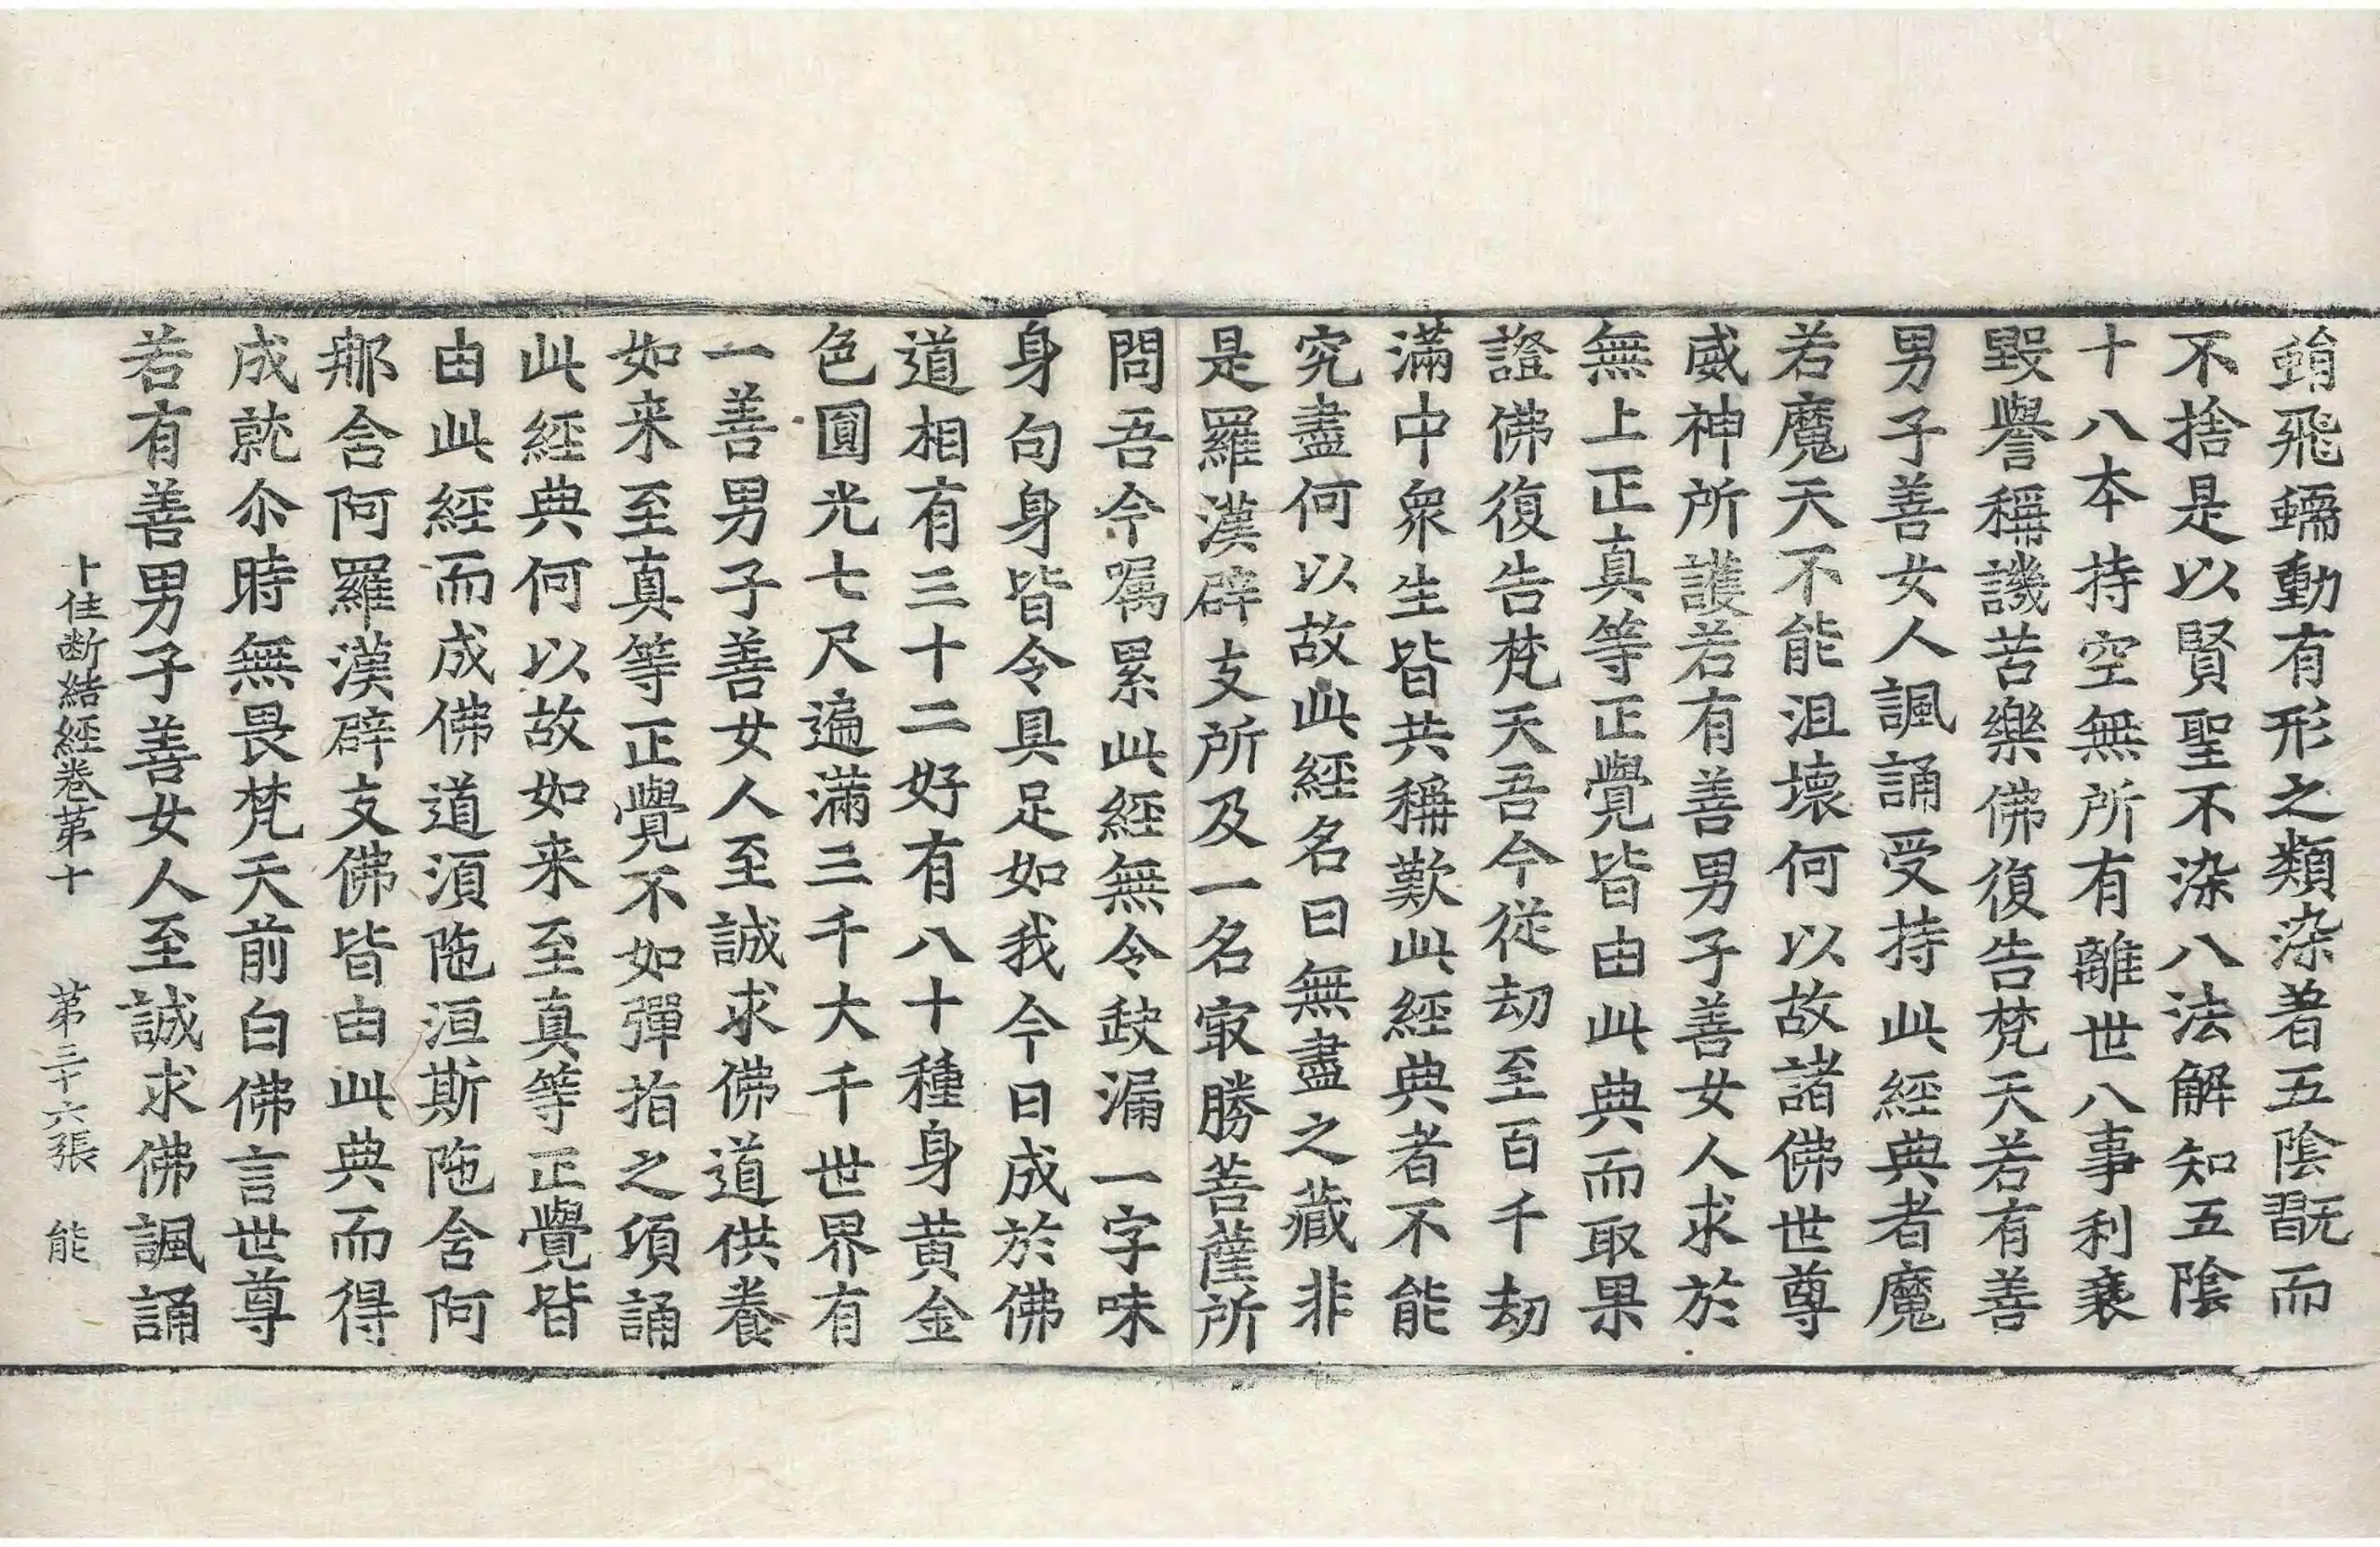 蜎飛蠕動有形之類染著五陰翫而
不捨是以賢聖不染八法解知五陰
十八本持空無所有離世八事利衰
毀譽稱譏苦樂佛復告梵天若有善
男子善女人諷誦受持此經典者魔
若魔天不能沮壞何以故諸佛世尊
威神所護若有善男子善女人求於
無上正真等正覺皆由此典而取果
證佛復告梵天吾今從劫至百千劫
滿中衆生皆共稱歎此經典者不能
究盡何以故此經名曰無盡之藏非
是羅漢辟支所及一名㝡勝菩薩所
問吾今囑累此經無令缺漏一字味
身句身皆令具足如我今日成於佛
道相有三十二好有八十種身黃金
色圓光七尺遍滿三千大千世界有
一善男子善女人至誠求佛道供養
如来至真等正覺不如彈指之頃誦
此經典何以故如来至真等正覺皆
由此經而成佛道須陁洹斯陁含阿
那含阿羅漢辟支佛皆由此典而得
成就尒時無畏梵天前白佛言世尊
若有善男子善女人至誠求佛諷誦
十住断結經卷第十 第三十六張 能